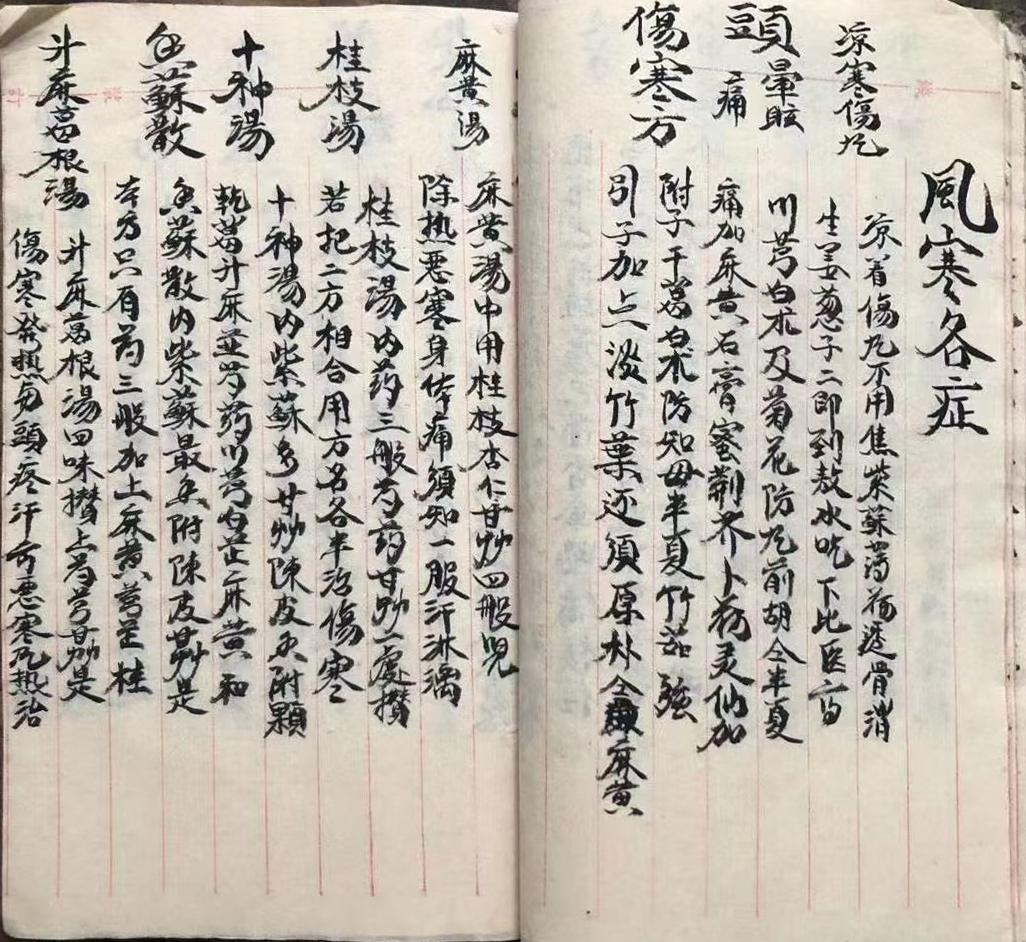 風寒各症
凉寒傷风
凉着傷风不用焦紫蘇薄荷透骨消
生姜葱子二即到熬水吃下比医高
頭暈眩
痛
川芎白朮及菊花防风前胡全半夏
痛加麻黄石膏蜜荆芥卜荷灵仙加
傷寒方
附子干葛白朮防知母半夏竹茹強
引子加点淡竹葉还須厚朴全麻黄
麻黄湯
麻黄湯中用桂枝杏仁甘艸四般児
除热悪寒身体痛須知一服汗淋漓
桂枝湯
桂枝湯内药三般芍药甘艸一處攢
若把二方相合用方名各半治傷寒
十神湯
十神湯内紫蘇多甘艸陳皮香附顆
乾葛升麻並芍药川芎白芷麻黄和
香蘇散
香蘇散内柴蘇最香附陳皮甘艸是
本方只有药三般加上麻黄芎芷桂
升麻葛根湯
升麻葛根湯四味攢上芍芎甘艸是
傷寒發热与頭疼汗而悪寒风热治